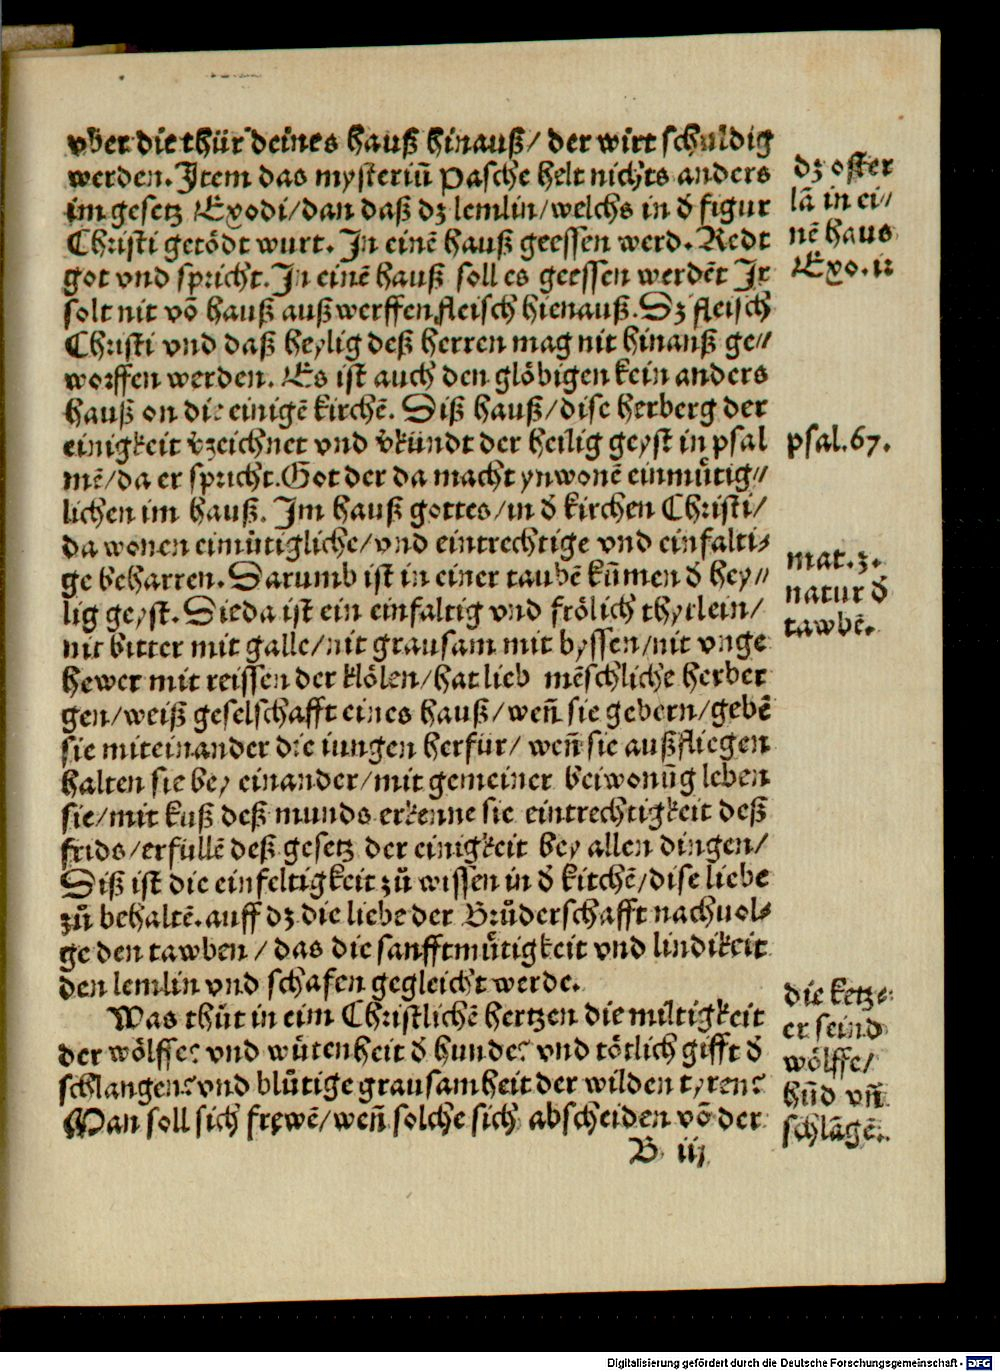 vber die thür deines hauß hinauß/ der wirt schuldig
werden. Item das mysteriū Pasche helt nichts anders
im gesetz Exodi/dan daß dz lemlin/welchs in d̕ figur
Christi getödt wurt. In einē hauß geessen werd. Redt
got vnd spricht. In einē hauß soll es geessen werdēt Ir
solt nit vō hauß außwerffen fleisch hienauß. Dz fleisch
Christi vnd daß heylig deß herren mag nit hinauß ge//
worffen werden. Es ist auch den glöbigen kein anders
hauß on die einigē kirchē. Diß hauß/dise herberg der
einigkeit v̄zeichnet vnd v̄kündt der heilig geyst in psal
mē/da er spricht. Got der da macht ynwonē einmůtig//
lichen im hauß. Im hauß gottes/in d̕ kirchen Christi/
da wonen eimůtigliche/vnd eintrechtige vnd einfalti//
ge beharren. Darumb ist in einer taubē kūmen d̕ hey//
lig geyst. Die da ist ein einfaltig vnd frölich thyrlein/
nit bitter mit galle/nit grausam mit byssen/nit vnge
hewer mit reissen der klölen/hat lieb mēschliche herber
gen/weiß geselschafft eines hauß/weñ sie gebern/gebē
sie miteinander die iungen herfür/ weñ sie außfliegen
halten sie bey einander/mit gemeiner beiwonūg leben
sie/mit kuß deß munds erkenne sie eintrechtigkeit deß
frids/erfüllē deß gesetz der einigkeit bey allen dingen/
Diß ist die einfeltigkeit zů wissen in d̕ kitchē/dise liebe
zů behaltē. auff dz die liebe der Brůderschafft nachuol//
ge den tawben/ das die sanfftmůtigkeit vnd lindikeit
den lemlin vnd schafen gegleicht werde.
Was thůt in eim Christlichē hertzen die miltigkeit
der wölffe? vnd wůtenheit d̕ hunde? vnd tötlich gifft d̕
schlangen? vnd blůtige grausamheit der wilden tyren?
Man soll sich frewē/weñ solche sich abscheiden vō der
B iij
dz oster
lā in ei//
nē haus
Exo. 12
psal. 67.
mat. 3.
natur d̕
tawbē.
die ketze
er seind
wölffe/
hūd vñ
schlāgē.
Digitalisierung gefördert durch die Deutsche Forschungsgemeinschaft - DFG